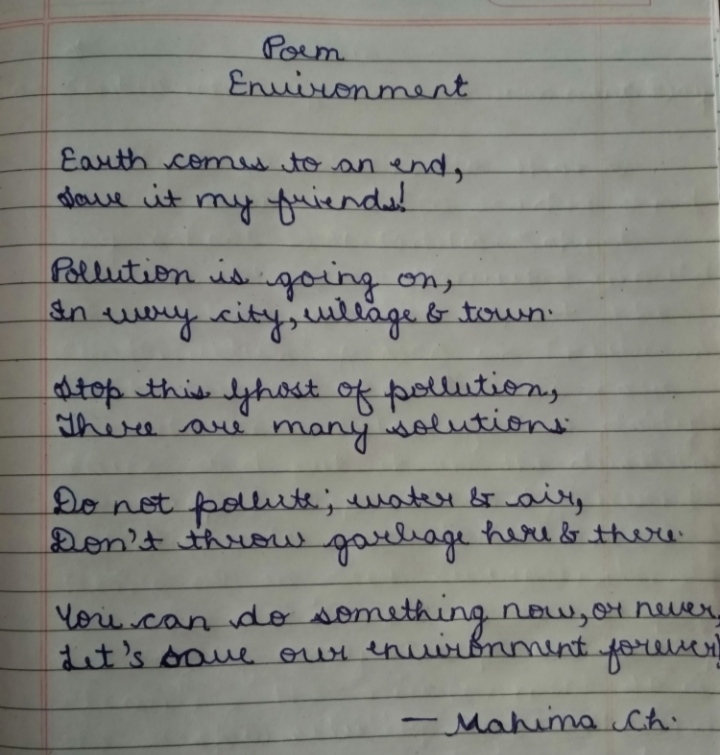 Poem
Environment
Earth comes to an end,
Save it my friends!
Pollution is going on,
In every city, village & town.
Stop this Ghost of pollution,
There are many solutions.
Do not pollute; water & air,
Don't throw garbage here & there.
You can do something now, or never,
Let's save our environment forever!
— Mahima Ch.